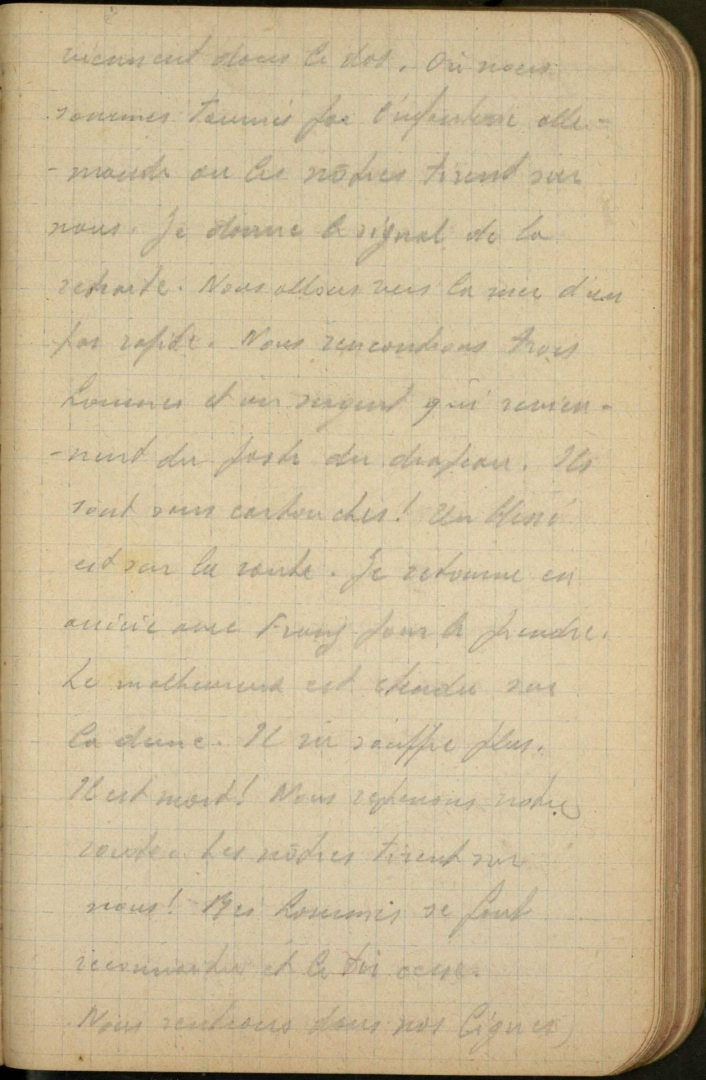 viennent dans le dos. Où nous
sommes tournés par l'infanterie alle-
-mande ou les nôtres tirent sur
nous. Je donne le signal de la
retraite. Nous allons vers la mer d'un
pas rapide. Nous rencontrons trois
hommes et un sergent qui revien-
-nent du poste du drapeau. Ils
sont sans cartouches! Un blessé
est sur la route. Je retourne en
arrière avec pour le prendre.
Le malheureux est étendu sur
la dune. Il ne souffre plus.
Il est mort! Nous reprenons notre
route. Les nôtres tirent sur
nous! Mes hommes se font
reconnaître et le tir cesse.
Nous rentrons dans nos lignes